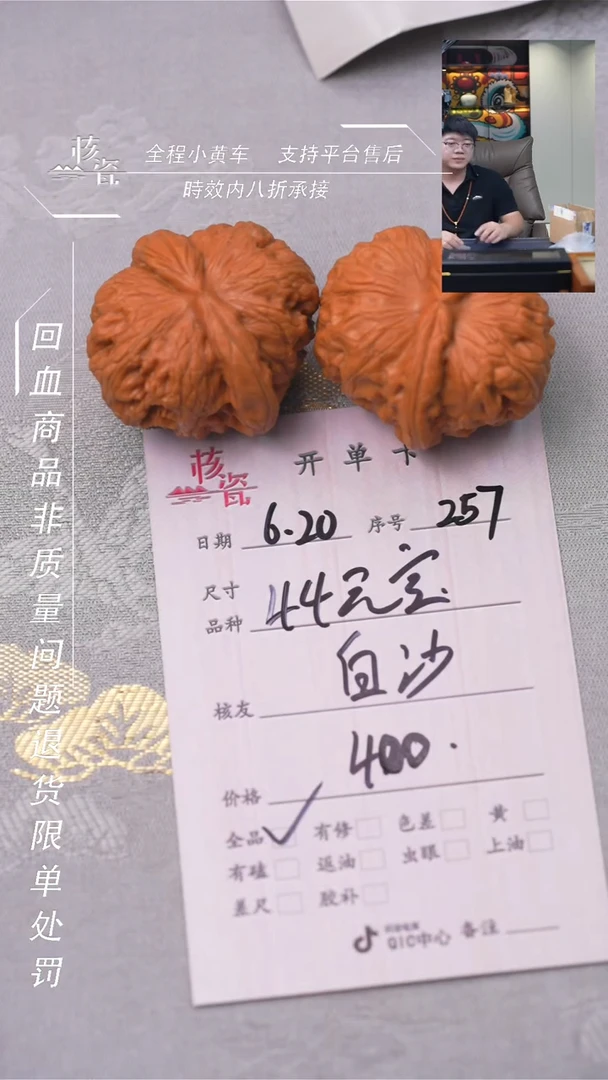 核瓷
全程小黄车 支持平台售后
時效内八折承接
回血商品非质量问题退货限单处罚
核瓷 开单卡
日期 6.20 序号 257
尺寸
品种 44元宝
核友 白沙
价格 400.
全品 有修 色差 黄
有磕 返油 虫眼 上油
差尺 胶补
QIC中心 备注